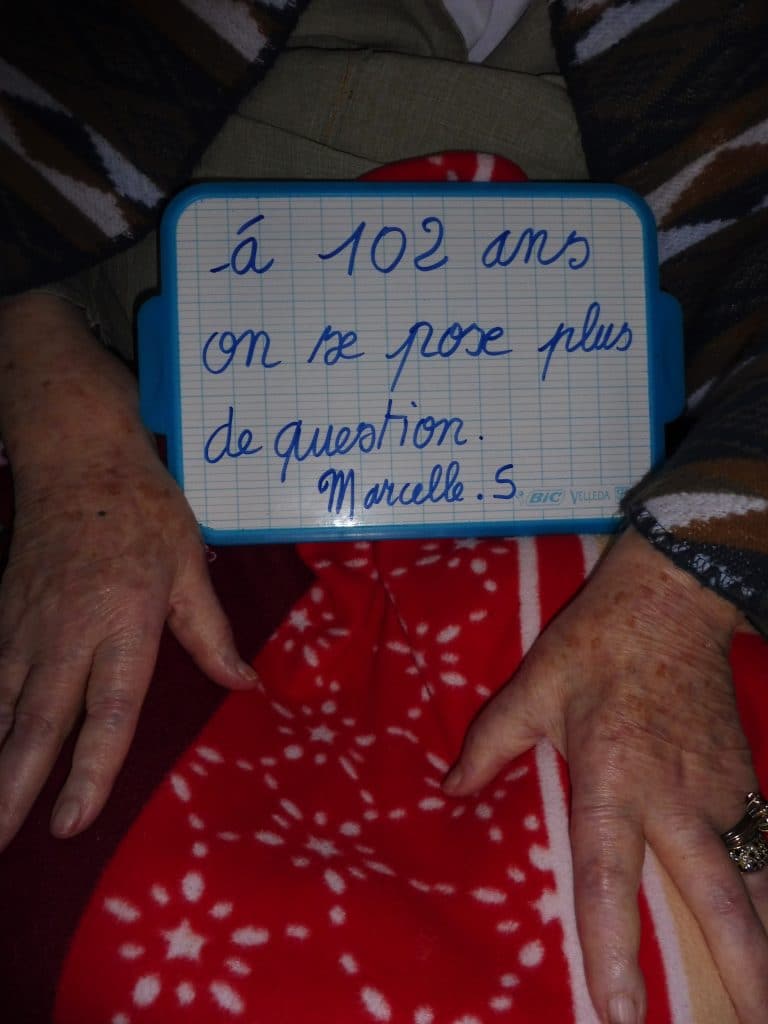 -á 102 ans
on se pose plus
de question.
Marcelle.S
BIC VELLEDA